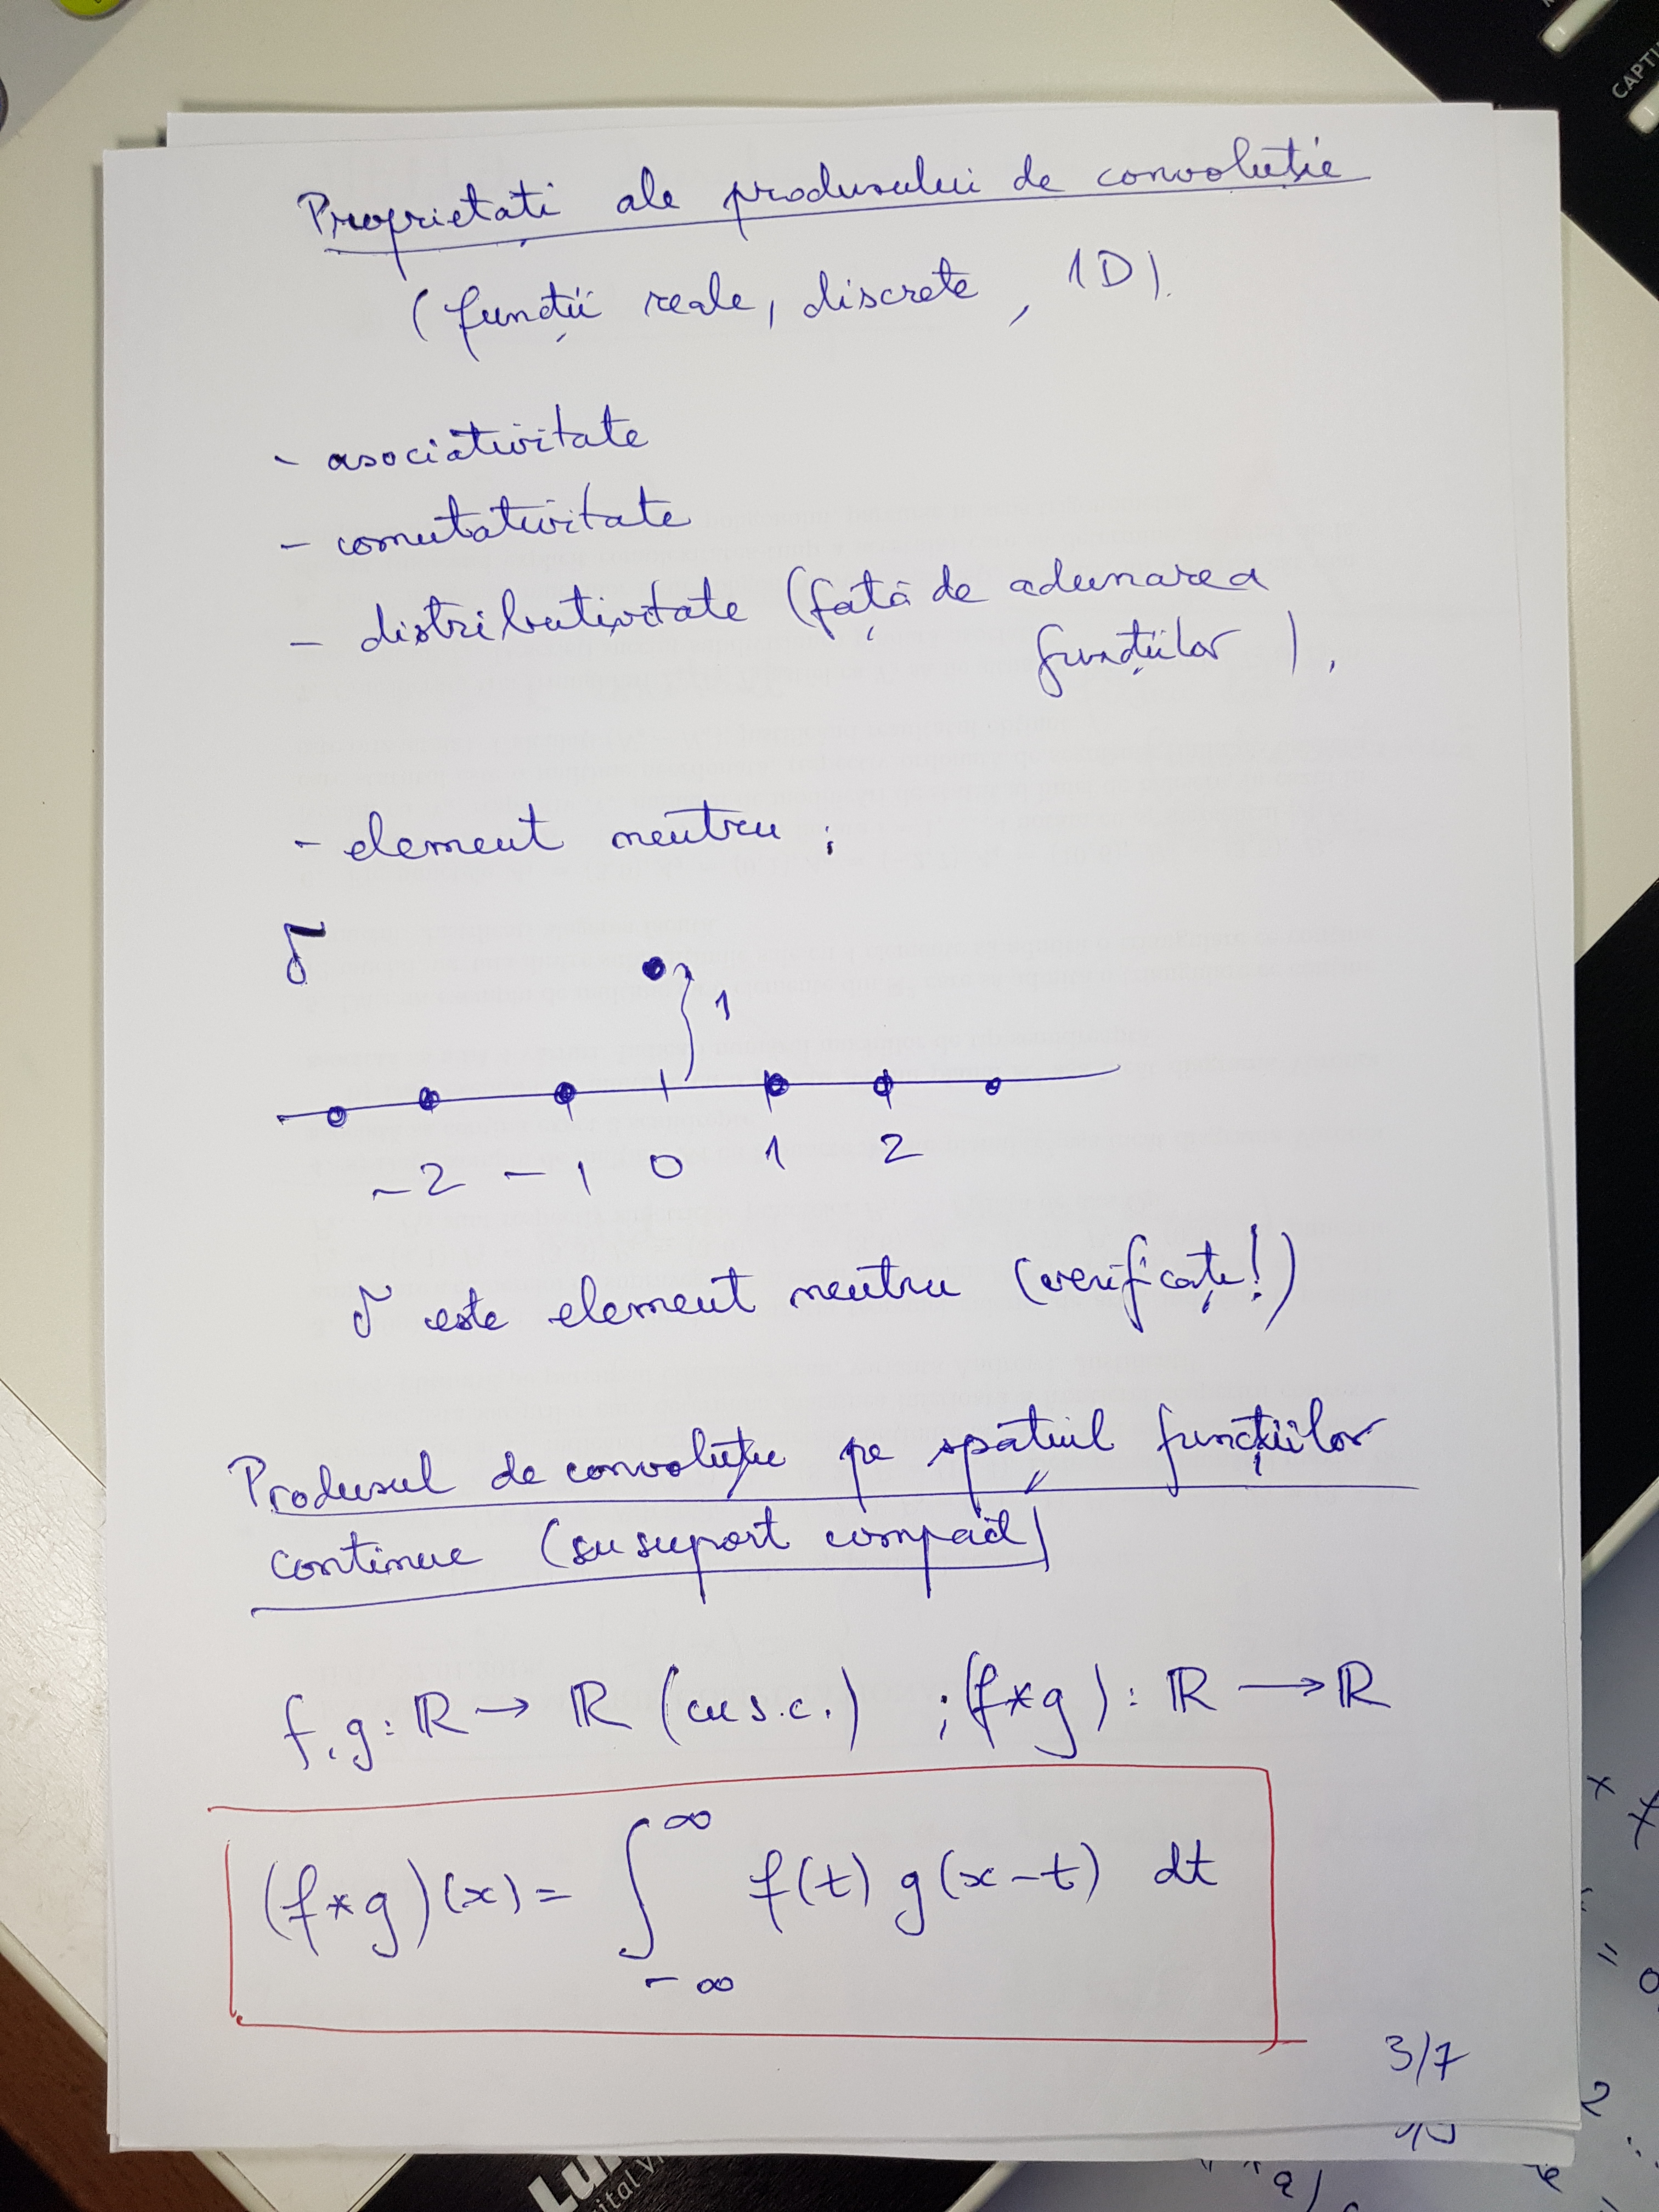 Proprietăți ale produsului de convoluție
(funcții reale, discrete, 1D).
- asociativitate
- comutativitate
- distributivitate (față de adunarea
funcțiilor).
- element neutru;
δ
1
-2 -1 0 1 2
δ este element neutru (verificați!)
Produsul de convoluție pe spațiul funcțiilor
continue (cu suport compact)
f, g: ℝ → ℝ (cu s.c.) ; (f*g): ℝ → ℝ
(f*g)(x) = ∫_{-∞}^{∞} f(t) g(x-t) dt
3/7